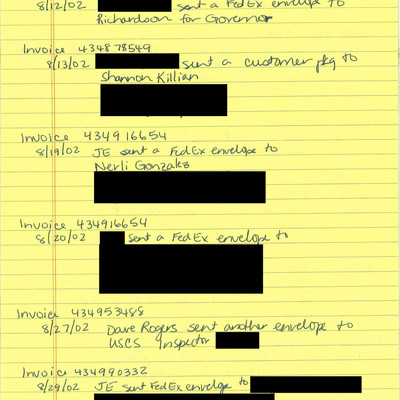 8/12/02 sent a FedEx envelope to
Richardson for Governor
Invoice 434878549
8/13/02 sent a customer pkg to
Shannon Killian
Invoice 434916654
8/19/02 JE sent a FedEx envelope to
Nerli Gonzales
Invoice 434916654
8/20/02 sent a FedEx envelope to
Invoice 434953488
8/27/02 Dave Rogers sent another envelope to
USCS Inspector
Invoice 434990332
8/29/02 JE sent FedEx envelope to